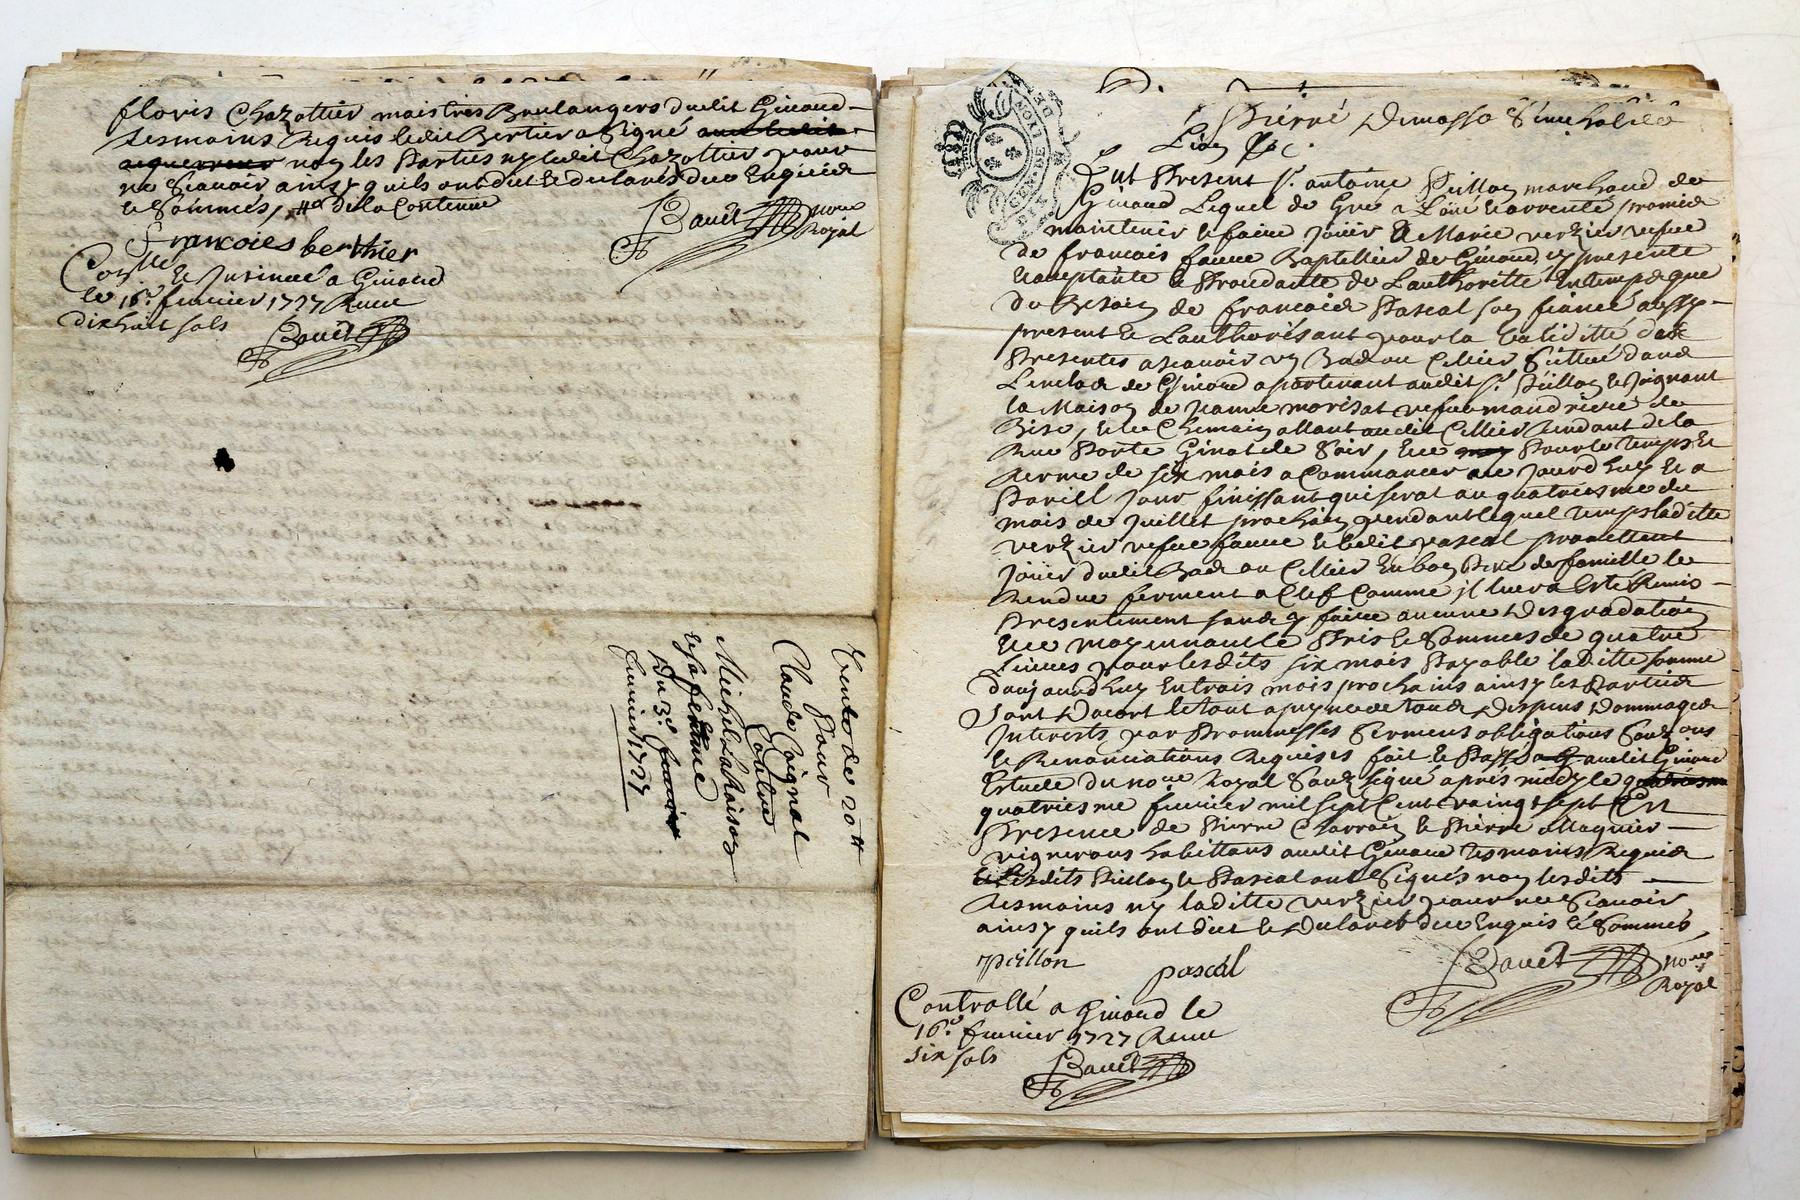 floris Chazottier maistres Boulangers dudit Givord
tesmoins Requis ledit Bertier a Signé
non les Parties ny ledit Chazottier pour
ne Scavoir ainsy quils ont dit et declarés de ce Enquis
et Sommés, de la Contenue
Bauet nore
Royal
francoies berthier
Conllé et Insinué a Givord
le 16e fevrier 1727 Receu
dix huit sols
Bauet
Vente de 20tt
Pour
Claude Coignal
Contre
Michel
et sa femme
Du 3e
fevrier 1727
GEN. DE LION
Pierre
Lion
fut Present Sr. antoine Peillon marchand de
Givord Lequel de Gre a Loüé et arrenté promis
maintenir et faire Joüir a Marie verzier vefue
de francois faure Baptellier de Givord, cy presente
et acceptante et Procedante de Lauthorité en temps que
du Besoin de francois Pascal son fiancé aussy
present et Lauthorisant pour la validitté des
Presentes a scavoir un Bas ou Cellier Sittué dans
Lenclos de Givord apartenant audit Sr. Peillon et Joignant
la Maison de Jeanne morisat vefue mandrieré de
Bise, et le Chemin allant audit Cellier tendant de la
Rue Porte Ginot de Soir, et ce Pour le temps et
terme de six mois a Commancer au Jourdhuy et a
Pareil Jour finissant qui serat au quatriesme du
mois de Juillet prochain pendant lequel temps laditte
verzier vefue faure et ledit pascal promettent
Joüir dudit Bas ou Cellier En bon Pere de famille le
Rendre ferment a Clef Comme il leur a Esté Remis
Presentement sans y faire aucune Desgradation
et ce moyennant le Pris et Sommes de quatre
Livres pour lesdits six mois Payable laditte somme
daujourdhuy En trois mois prochains ainsy les Parties
Sont Dacort le tout a peyne de tous Despens Dommages
Interests par Prommesses Sermens obligations Soumions
et Renonciations Requises fait et Passé audit Givord
Estude du nore Royal Souz signé après midy le
quatriesme fevrier mil sept Cent vaingt sept En
Presence de Pierre Charroin et Pierre Magnier
vignerons habittans audit Givord tesmoins Requis
Lesdits Peillon et Pascal ont Signés non lesdits
tesmoins ny laditte verzier pour ne Scavoir
ainsy quils ont dit et Declaré de ce Enquis et Sommés
peillon
pascal
Bauet nore
Royal
Controllé a Givord le
16e fevrier 1727 Receu
six sols
Bauet